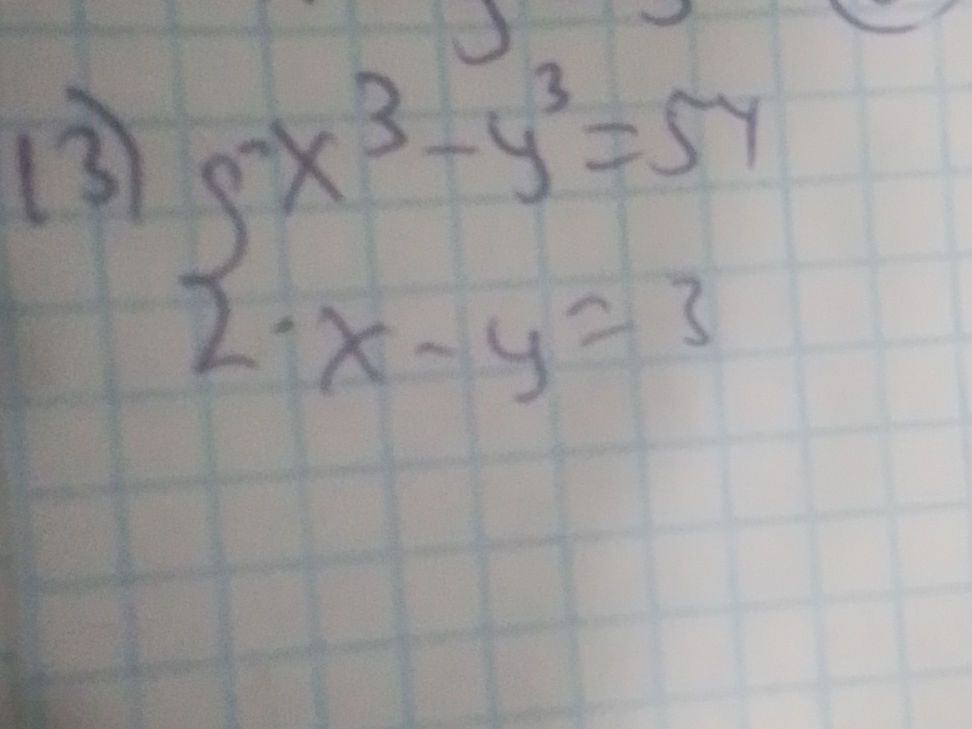 13) { x³ - y³ = 54
x - y = 3